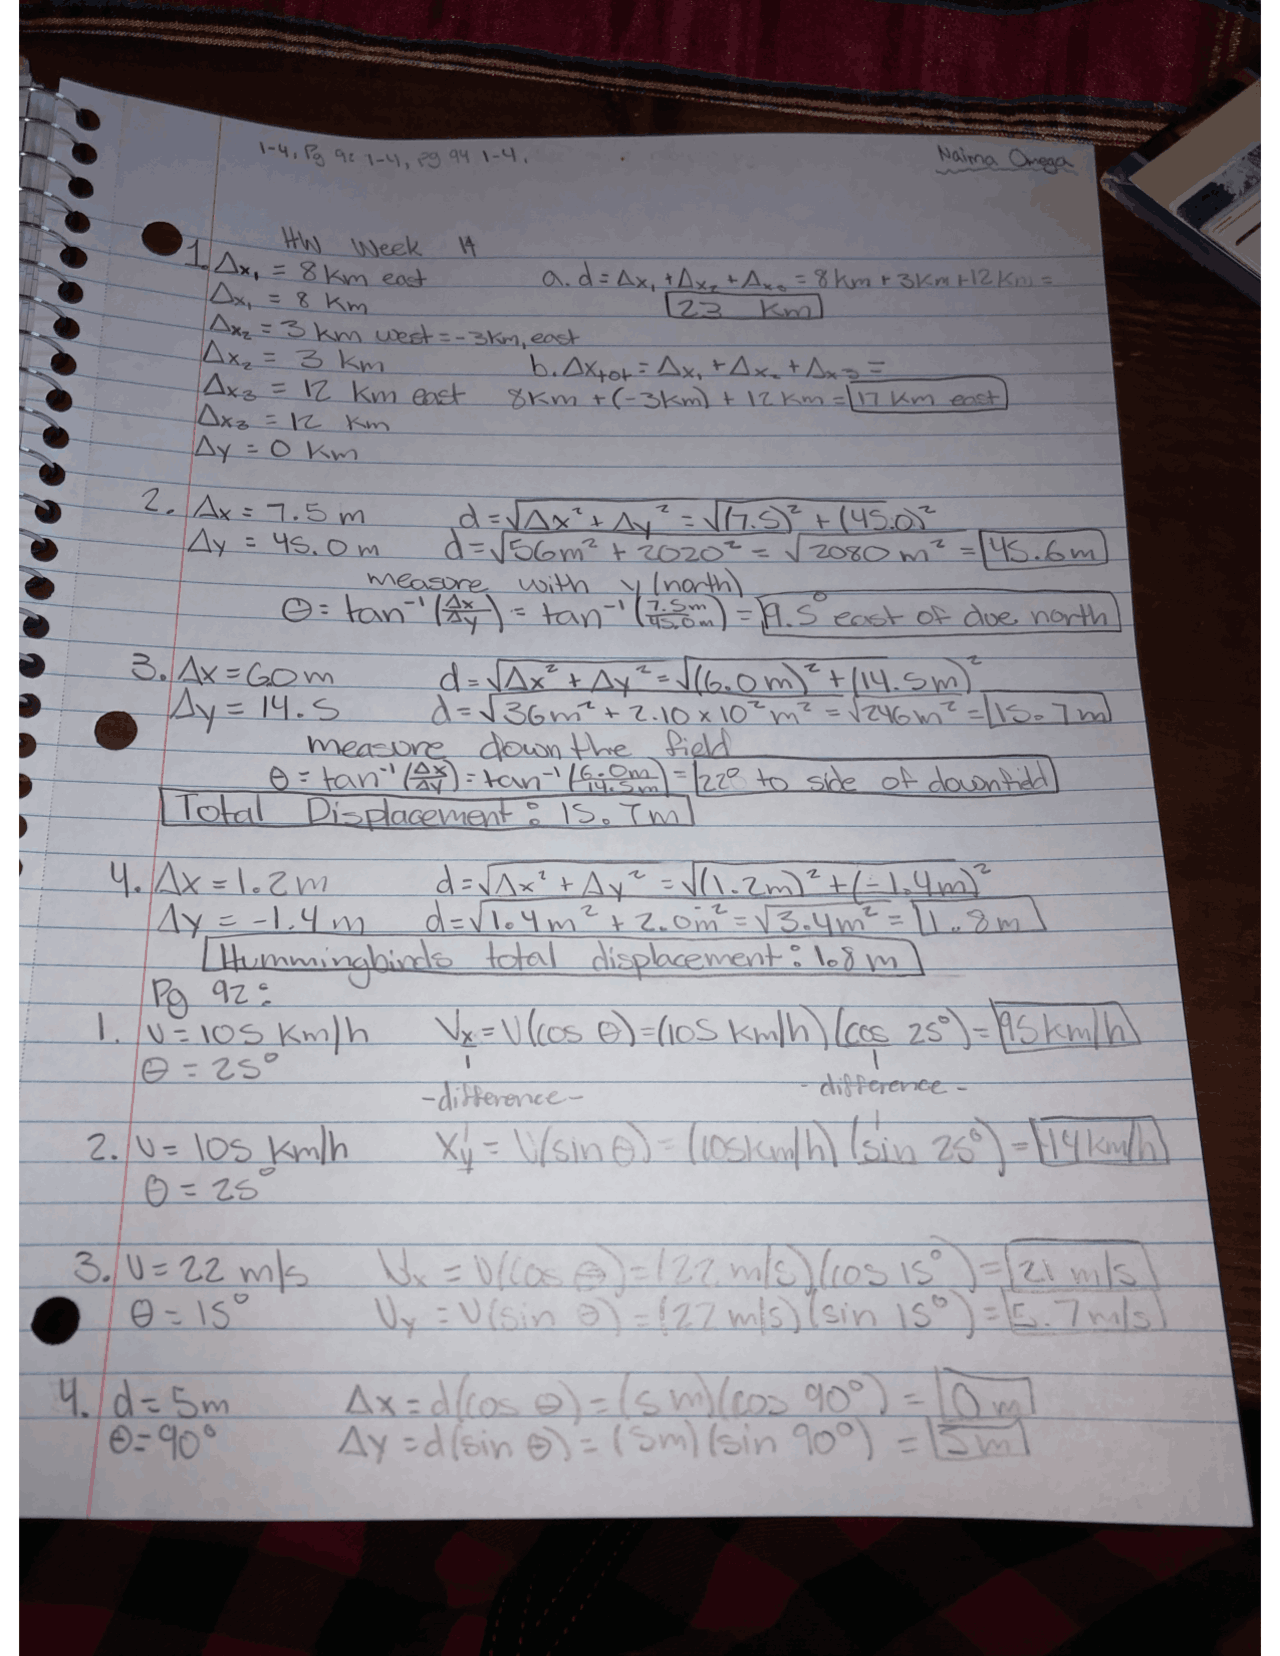 1-4, Pg 92 1-4, pg 94 1-4.
Naima Omega
HW Week 14
1. Δx₁ = 8 km east a. d = Δx₁ + Δx₂ + Δx₃ = 8 km + 3 km + 12 km =
Δx₁ = 8 km 23 km
Δx₂ = 3 km west = -3km, east
Δx₂ = 3 km b. Δxtot = Δx₁ + Δx₂ + Δx₃ =
Δx₃ = 12 km east 8km + (-3km) + 12 km = 17 km east
Δx₃ = 12 km
Δy = 0 km
2. Δx = 7.5 m d = √Δx² + Δy² = √(7.5)² + (45.0)²
Δy = 45.0 m d = √56m² + 2020² = √2080 m² = 45.6m
measure with y (north)
θ = tan⁻¹ (Δx/Δy) = tan⁻¹ (7.5m/45.0m) = 9.5° east of due north
3. Δx = 6.0m d = √Δx² + Δy² = √(6.0m)² + (14.5m)²
Δy = 14.5 d = √36m² + 2.10 x 10² m² = √246m² = 15.7m
measure down the field
θ = tan⁻¹ (Δx/Δy) = tan⁻¹ (6.0m/14.5m) = 22° to side of downfield
Total Displacement: 15.7m
4. Δx = 1.2m d = √Δx² + Δy² = √(1.2m)² + (-1.4m)²
Δy = -1.4 m d = √1.4m² + 2.0m² = √3.4m² = 1.8m
Hummingbirds total displacement: 1.8 m
Pg 92:
1. v = 105 km/h Vx = V(cos θ) = (105 km/h) (cos 25°) = 95km/h
θ = 25°
-difference- -difference-
2. v = 105 km/h Xy = V(sin θ) = (105km/h) (sin 25°) = 44km/h
θ = 25°
3. v = 22 m/s Vx = V(cos θ) = (22 m/s)(cos 15°) = 21 m/s
θ = 15° Vy = V(sin θ) = (22 m/s)(sin 15°) = 5.7m/s
4. d = 5m Δx = d(cos θ) = (5 m)(cos 90°) = 0m
θ = 90° Δy = d(sin θ) = (5m)(sin 90°) = 5m